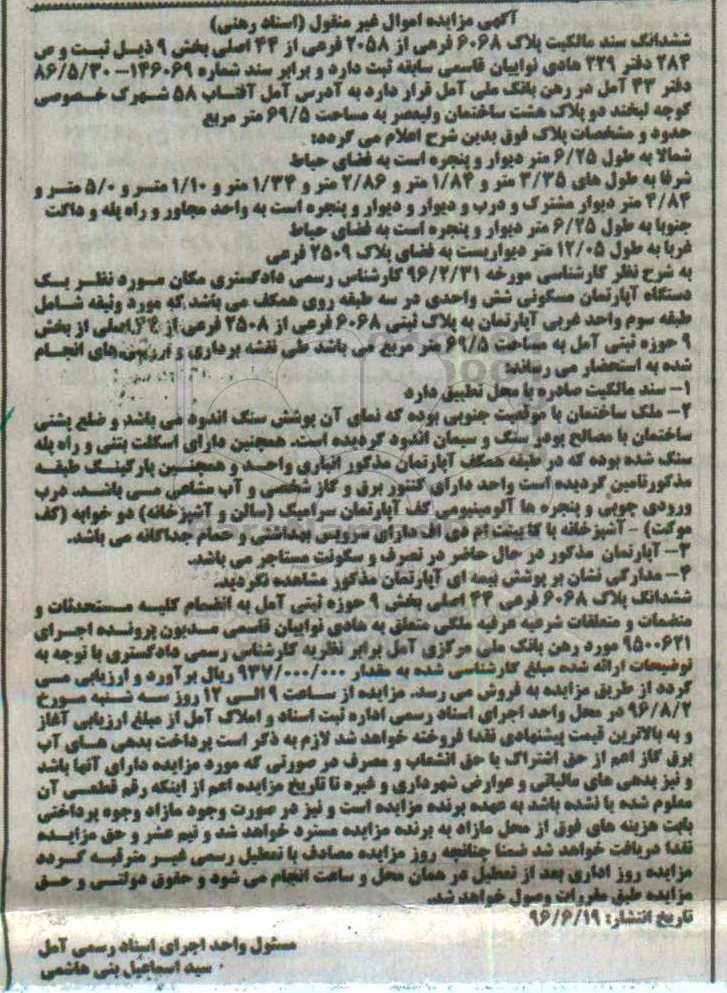 آگهی مزایده اموال غیر منقول (اسناد رهنی)
ششدانگ سند مالکیت پلاک ۶۰۶۸ فرعی از ۲۰۵۸ فرعی از ۴۴ اصلی بخش ۹ ذیل ثبت و ص
۲۸۴ دفتر ۲۲۹ هادی نوابیان قاسمی سابقه ثبت دارد و برابر سند شماره ۱۴۶۰۶۹– ۸۶/۵/۳۰
دفتر ۴۳ آمل در رهن بانک ملی آمل قرار دارد به آدرس آمل آفتاب ۵۸ شهرک خصوصی
کوچه لبخند دو پلاک هشت ساختمان ولیعصر به مساحت ۶۹/۵ متر مربع
حدود و مشخصات پلاک فوق بدین شرح اعلام می گردد:
شمالا به طول ۶/۲۵ متر دیوار و پنجره است به فضای حیاط
شرقا به طول های ۳/۳۵ متر و ۱/۸۴ متر و ۲/۸۶ متر و ۱/۳۴ متر و ۱/۱۰ متر و ۵/۰ متر و
۴/۸۴ متر دیوار مشترک و درب و دیوار و دیوار و پنجره است به واحد مجاور و راه پله و داکت
جنوبا به طول ۶/۲۵ متر دیوار و پنجره است به فضای حیاط
غربا به طول ۱۲/۰۵ متر دیواریست به فضای پلاک ۲۵۰۹ فرعی
به شرح نظر کارشناسی مورخه ۹۶/۲/۳۱ کارشناس رسمی دادگستری مکان مورد نظر یک
دستگاه آپارتمان مسکونی شش واحدی در سه طبقه روی همکف می باشد که مورد وثیقه شامل
طبقه سوم واحد غربی آپارتمان به پلاک ثبتی ۶۰۶۸ فرعی از ۲۵۰۸ فرعی از ۴۴ اصلی از بخش
۹ حوزه ثبتی آمل به مساحت ۶۹/۵ متر مربع می باشد طی نقشه برداری و ارزیابی های انجام
شده به استحضار می رساند:
۱– سند مالکیت صادره با محل تطبیق دارد
۲– ملک ساختمان با موقعیت جنوبی بوده که نمای آن پوشش سنگ اندود می باشد و ضلع پشتی
ساختمان با مصالح پودر سنگ و سیمان اندود گردیده است. همچنین دارای اسکلت بتنی و راه پله
سنگ شده بوده که در طبقه همکف آپارتمان مذکور انباری واحد و همچنین پارکینگ طبقه
مذکورتامین گردیده است واحد دارای کنتور برق و گاز شخصی و آب مشاعی می باشد. درب
ورودی چوبی و پنجره ها آلومینیومی کف آپارتمان سرامیک (سالن و آشپزخانه) دو خوابه (کف
موکت) – آشپزخانه با کابینت ام دی اف دارای سرویس بهداشتی و حمام جداگانه می باشد.
۳– آپارتمان مذکور در حال حاضر در تصرف و سکونت مستاجر می باشد.
۴– مدارکی نشان بر پوشش بیمه ای آپارتمان مذکور مشاهده نگردید.
ششدانگ پلاک ۶۰۶۸ فرعی ۴۴ اصلی بخش ۹ حوزه ثبتی آمل به انضمام کلیه مستحدثات و
منضمات و متعلقات شرعیه عرفیه ملکی متعلق به هادی نوابیان قاسمی مدیون پرونده اجرای
۹۵۰۰۶۲۱ مورد رهن بانک ملی مرکزی آمل برابر نظریه کارشناس رسمی دادگستری با توجه به
توضیحات ارائه شده مبلغ کارشناسی شده به مقدار ۹۳۷/۰۰۰/۰۰۰ ریال برآورد و ارزیابی می
گردد از طریق مزایده به فروش می رسد. مزایده از ساعت ۹ الی ۱۲ روز سه شنبه مورخ
۹۶/۸/۲ در محل واحد اجرای اسناد رسمی اداره ثبت اسناد و املاک آمل از مبلغ ارزیابی آغاز
و به بالاترین قیمت پیشنهادی نقدا فروخته خواهد شد لازم به ذکر است پرداخت بدهی های آب
برق گاز اعم از حق اشتراک یا حق انشعاب و مصرف در صورتی که مورد مزایده دارای آنها باشد
و نیز بدهی های مالیاتی و عوارض شهرداری و غیره تا تاریخ مزایده اعم از اینکه رقم قطعی آن
معلوم شده یا نشده باشد به عهده برنده مزایده است و نیز در صورت وجود مازاد وجوه پرداختی
بابت هزینه های فوق از محل مازاد به برنده مزایده مسترد خواهد شد و نیم عشر و حق مزایده
نقدا دریافت خواهد شد ضمنا چنانچه روز مزایده مصادف با تعطیل رسمی غیر مترقبه گردد
مزایده روز اداری بعد از تعطیل در همان محل و ساعت انجام می شود و حقوق دولتی و حق
مزایده طبق مقررات وصول خواهد شد.
تاریخ انتشار: ۹۶/۶/۱۹
مسئول واحد اجرای اسناد رسمی آمل
سید اسماعیل بنی هاشمی